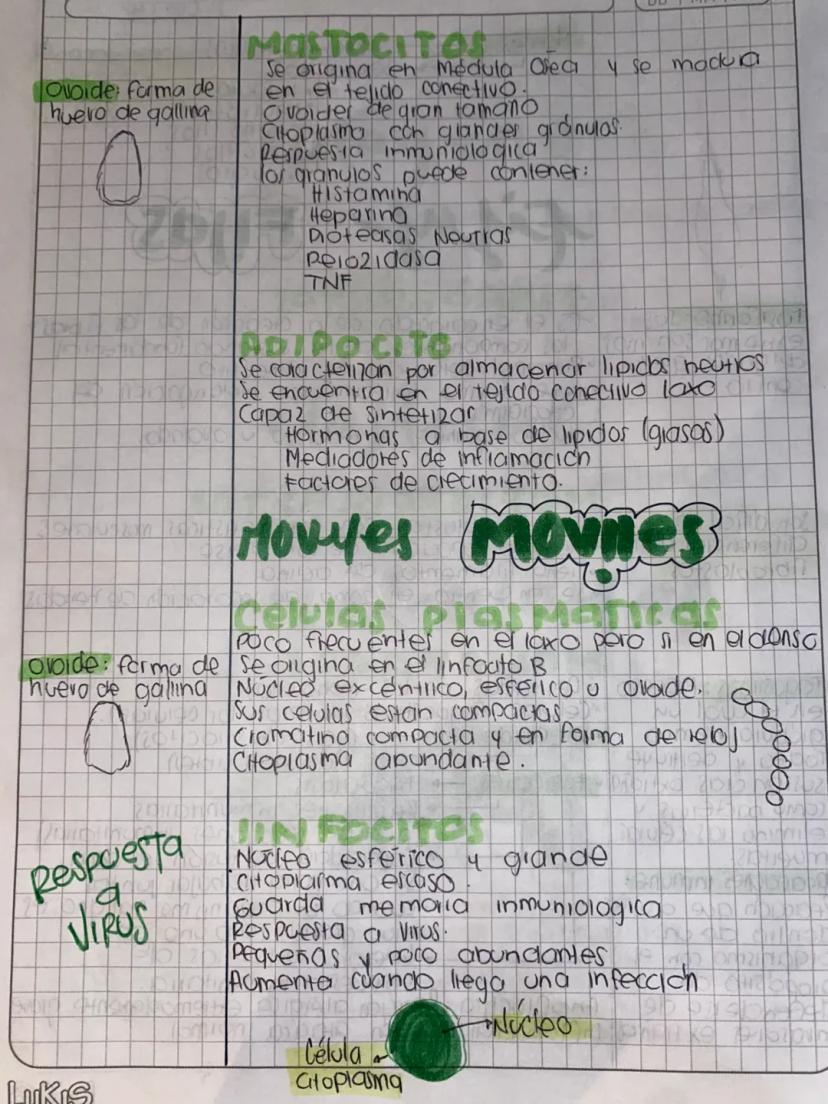 MASTOCITOS
Se origina en médula Osea y se madura
en el tejido conectivo.
Ovoides de gran tamaño
Citoplasma con grandes gránulos.
Respuesta inmuniologica
los granulos puede contener:
Histamina
Heparina
Proteasas Neutras
Peroxidasa
TNF
Ovoide: forma de
huevo de gallina
ADIPOCITO
Se caracterizan por almacenar lipidos neutros
Se encuentra en el tejido conectivo laxo
Capaz de sintetizar
Hormonas a base de lipidos (grasas)
Mediadores de inflamación
Factores de crecimiento.
Moviles MOVILES
Celulas Plasmaticas
Poco frecuentes en el laxo pero si en el denso
Se origina en el linfocito B
Núcleo excéntrico, esférico u ovoide.
Sus celulas estan compactas
Cromatina compacta y en forma de reloj
Citoplasma abundante.
ovoide: forma de
huevo de gallina
LINFOCITOS
Núcleo esférico y grande
Citoplasma escaso.
Guarda memoria inmuniologica
Respuesta a virus.
Pequeñas y poco abundantes
Aumenta cuando llega una infección
Respuesta
a
VIRUS
Núcleo
Célula
citoplasma
LUKIS